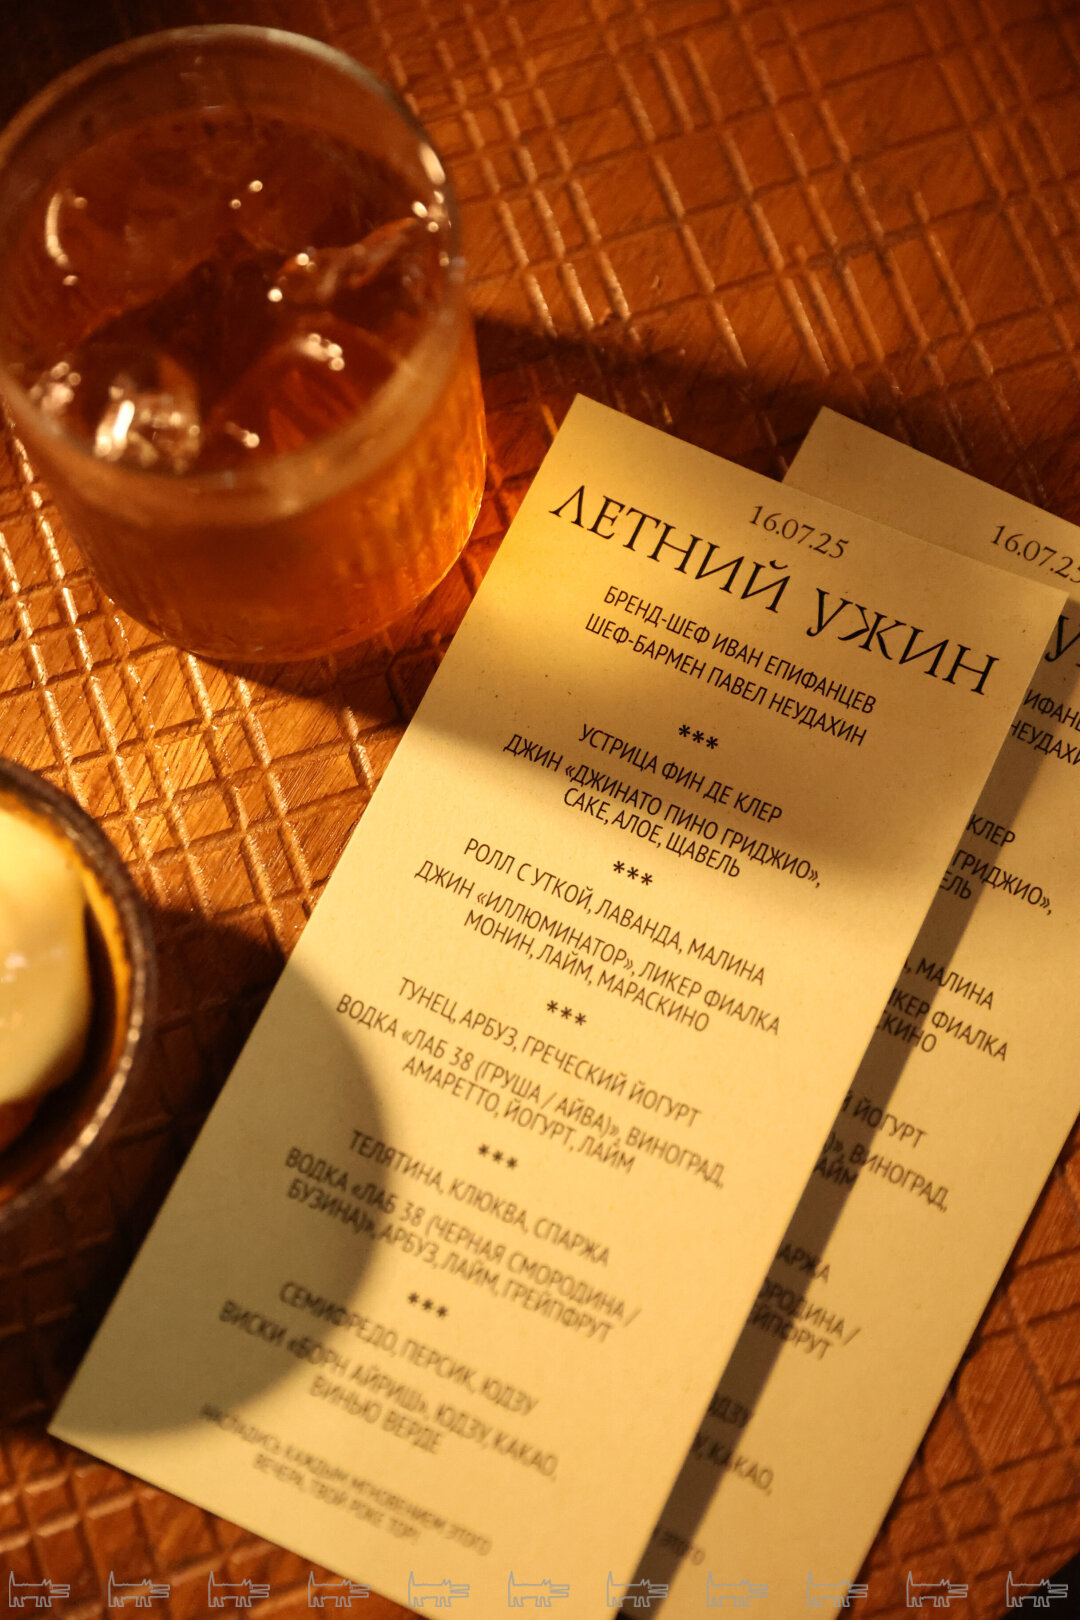 16.07.25
ЛЕТНИЙ УЖИН
БРЕНД-ШЕФ ИВАН ЕПИФАНЦЕВ
ШЕФ-БАРМЕН ПАВЕЛ НЕУДАХИН
***
УСТРИЦА ФИН ДЕ КЛЕР
ДЖИН «ДЖИНАТО ПИНО ГРИДЖИО»,
САКЕ, АЛОЕ, ЩАВЕЛЬ
***
РОЛЛ С УТКОЙ, ЛАВАНДА, МАЛИНА
ДЖИН «ИЛЛЮМИНАТОР», ЛИКЕР ФИАЛКА
МОНИН, ЛАЙМ, МАРАСКИНО
***
ТУНЕЦ, АРБУЗ, ГРЕЧЕСКИЙ ЙОГУРТ
ВОДКА «ЛАБ 38 (ГРУША / АЙВА)», ВИНОГРАД,
АМАРЕТТО, ЙОГУРТ, ЛАЙМ
***
ТЕЛЯТИНА, КЛЮКВА, СПАРЖА
ВОДКА «ЛАБ 38 (ЧЕРНАЯ СМОРОДИНА /
БУЗИНА)», АРБУЗ, ЛАЙМ, ГРЕЙПФРУТ
***
СЕМИФРЕДО, ПЕРСИК, ЮДЗУ
ВИСКИ «БОРН АЙРИШ», ЮДЗУ, КАКАО,
ВИНЬО ВЕРДЕ
НАСЛАДИСЬ КАЖДЫМ МГНОВЕНИЕМ ЭТОГО
ВЕЧЕРА, ТВОЙ РОКЕ ТОР!
16.07.25
КЛЕР
ГРИДЖИО»,
МАЛИНА
ФИАЛКА
ЙОГУРТ
ВИНОГРАД,
КАКАО,
ЭТОГО